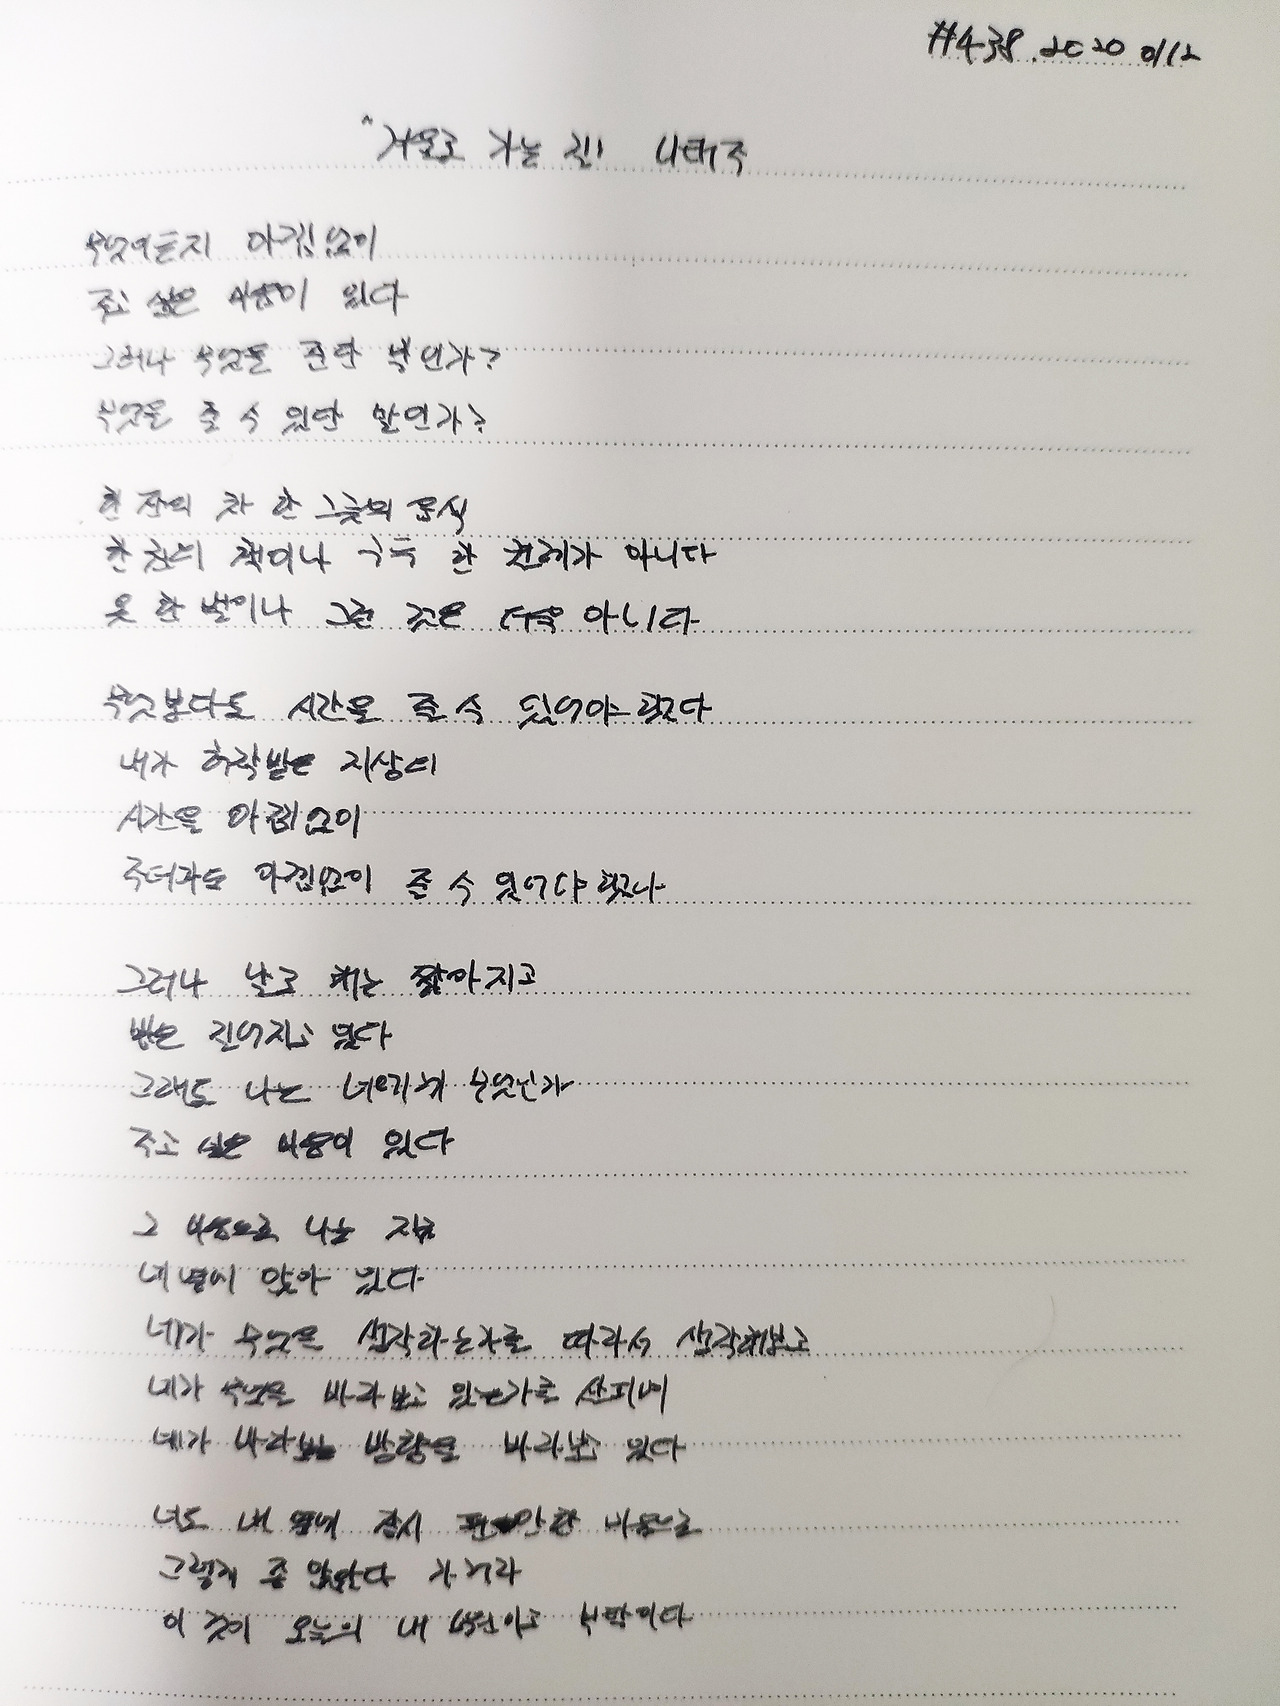 #438. 2020 0112
"겨울로 가는 길" 나태주
무엇이든지 아낌없이
주고 싶은 마음이 있다
그러나 무엇을 준단 말인가?
무엇을 줄 수 있단 말인가?
한 잔의 차 한 그릇의 음식
한 권의 책이나 구두 한 켤레가 아니다
옷 한 벌이나 그런 것은 더욱 아니다
무엇보다도 시간을 줄 수 있어야 했다
내가 허락받은 지상의
시간을 아낌없이
주더라도 아낌없이 줄 수 있어야 했다
그러나 날로 해는 짧아지고
밤은 길어지고 있다
그래도 나는 너에게 무엇인가
주고 싶은 마음이 있다
그 마음으로 나는 지금
네 옆에 앉아 있다
네가 무엇을 생각하는가를 따라서 생각해보고
네가 무엇을 바라보고 있는가를 살피며
네가 바라보는 방향을 바라보고 있다
너도 내 옆에 잠시 편안한 마음으로
그렇게 좀 앉았다 가거라
이것이 오늘의 내 소원이고 부탁이다